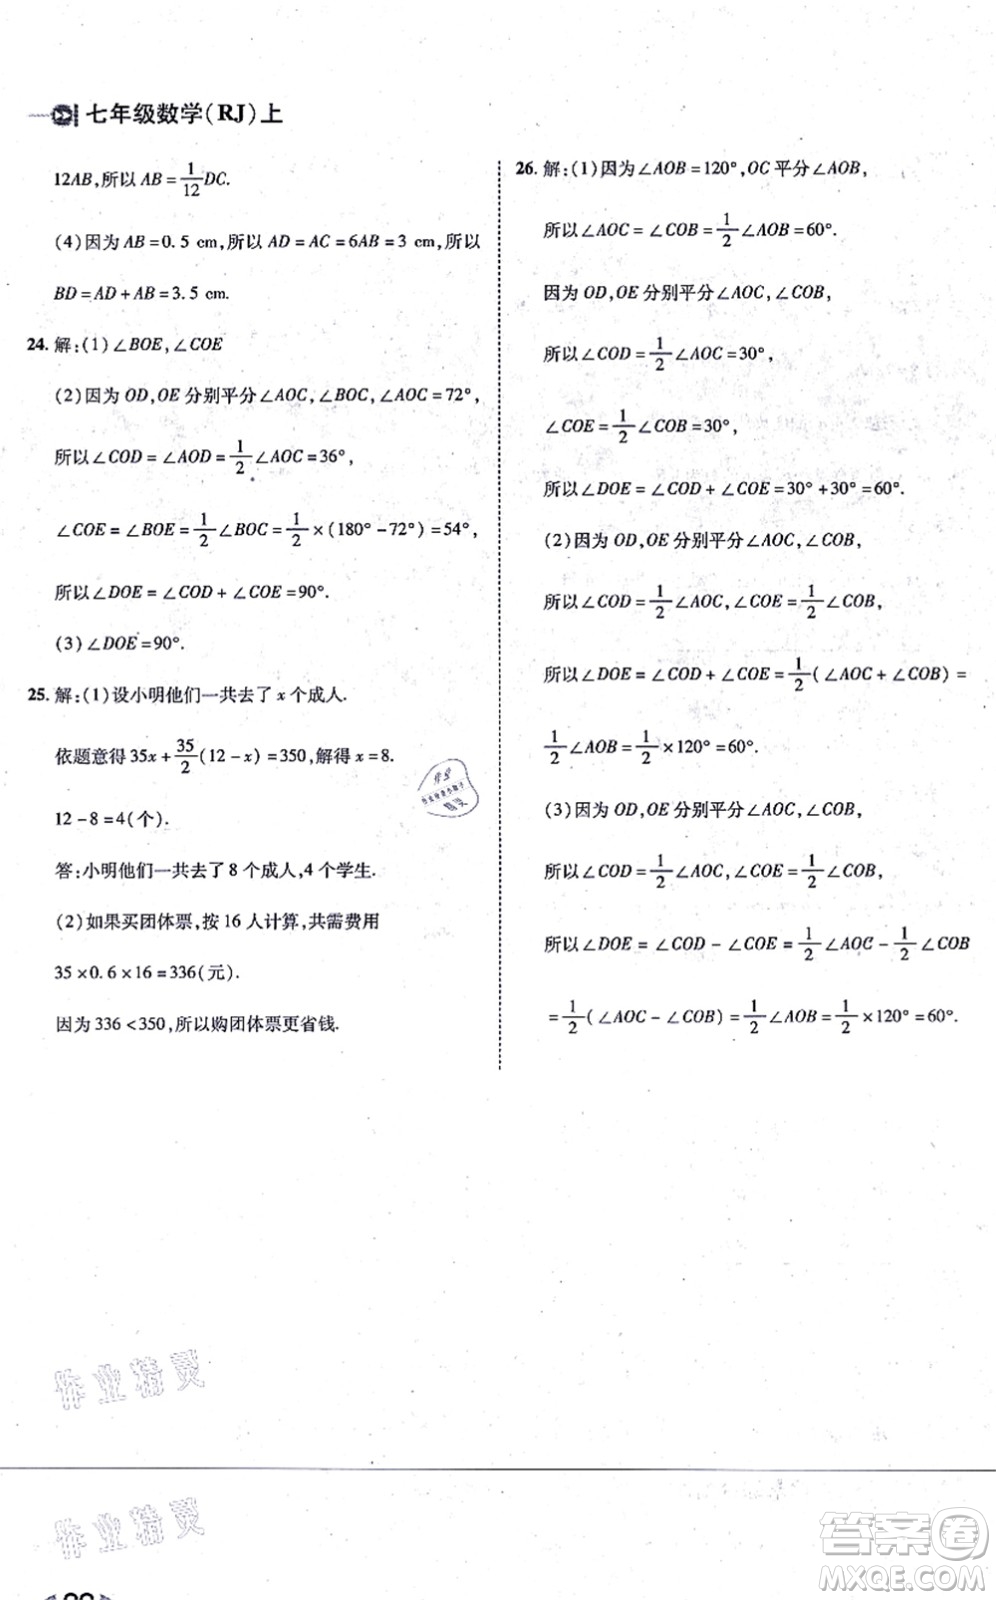 七年级数学(RJ)上
12AB,所以 AB = 1/12 DC.
(4)因为 AB = 0.5 cm,所以 AD = AC = 6AB = 3 cm,所以
BD = AD + AB = 3.5 cm.
24. 解:(1)∠BOE,∠COE
(2)因为 OD,OE 分别平分∠AOC,∠BOC,∠AOC = 72°,
所以∠COD = ∠AOD = 1/2 ∠AOC = 36°,
∠COE = ∠BOE = 1/2 ∠BOC = 1/2 × (180° - 72°) = 54°,
所以∠DOE = ∠COD + ∠COE = 90°.
(3)∠DOE = 90°.
25. 解:(1)设小明他们一共去了 x 个成人.
依题意得 35x + 35/2 (12 - x) = 350,解得 x = 8.
12 - 8 = 4(个).
答:小明他们一共去了 8 个成人,4 个学生.
(2)如果买团体票,按 16 人计算,共需费用
35 × 0.6 × 16 = 336(元).
因为 336 < 350,所以购团体票更省钱.
26. 解:(1)因为∠AOB = 120°,OC 平分∠AOB,
所以∠AOC = ∠COB = 1/2 ∠AOB = 60°.
因为 OD,OE 分别平分∠AOC,∠COB,
所以∠COD = 1/2 ∠AOC = 30°,
∠COE = 1/2 ∠COB = 30°,
所以∠DOE = ∠COD + ∠COE = 30° + 30° = 60°.
(2)因为 OD,OE 分别平分∠AOC,∠COB,
所以∠COD = 1/2 ∠AOC,∠COE = 1/2 ∠COB,
所以∠DOE = ∠COD + ∠COE = 1/2 (∠AOC + ∠COB) =
1/2 ∠AOB = 1/2 × 120° = 60°.
(3)因为 OD,OE 分别平分∠AOC,∠COB,
所以∠COD = 1/2 ∠AOC,∠COE = 1/2 ∠COB,
所以∠DOE = ∠COD - ∠COE = 1/2 ∠AOC - 1/2 ∠COB
= 1/2 (∠AOC - ∠COB) = 1/2 ∠AOB = 1/2 × 120° = 60°.
作业精灵
作业精灵
答案圈
MXQE.COM